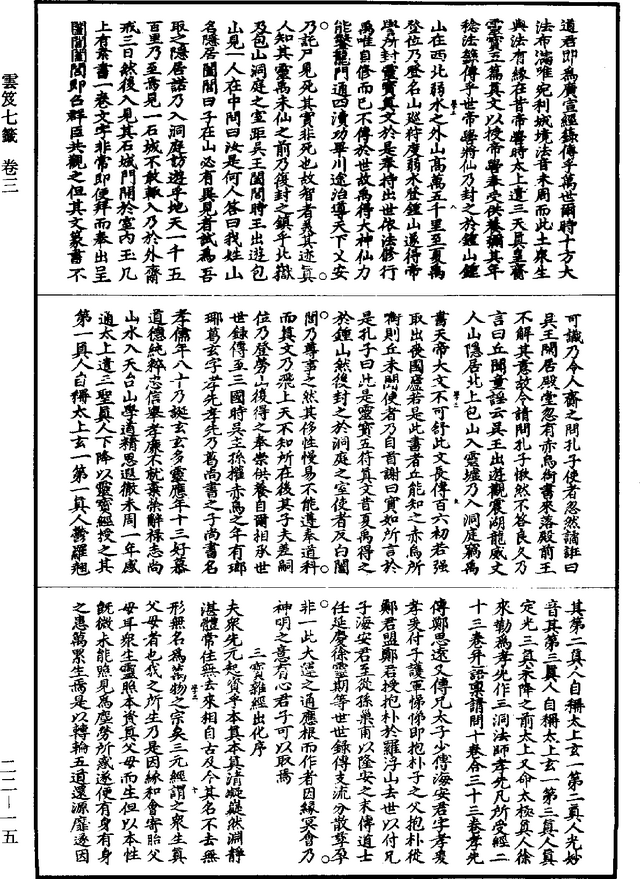 道君即爲廣宣經籙傳乎萬世爾時十方大
法布滿唯宛利城境法音未周而此土衆生
與法有緣在昔帝嚳時太上遣三天真皇賫
靈寶五篇真文以授帝嚳奉受供養彌其年
稔法籙傳乎世帝嚳將仙乃封之於鍾山鍾
山在西北弱水之外山高萬五千里至夏禹
登位乃登名山巡狩度弱水登鍾山遂得帝
嚳所封靈寶真文於是奉持出世依法修行
禹唯自修而已不傳於世故禹得大神仙力
能鑿龍門通四瀆功畢川途治導天下乂安
乃託尸見死其實非死也故智者美其迹真
人知其靈禹未仙之前乃復封之鎮乎北嶽
及包山洞庭之室距吳王闔閭時王出遊包
山見一人在中問曰汝是何人答曰我姓山
名隱居闔閭曰子在山必有異見者試爲吾
取之隱居諾乃入洞庭訪遊乎地天一千五
百里乃至焉見一石城不敢輒入乃於外齋
戒三日然後入見其石城門開於室內玉几
上有素書一卷文字非常即便拜而奉出呈
闔閭闔閭即召群臣共觀之但其文篆書不
可識乃令人齎之問孔子使者忽然譎誑曰
吳王閑居殿堂忽有赤烏銜書來落殿前王
不解其意故令請問孔子愀然不答良久乃
言曰丘聞童謠云吳王出遊觀震湖龍威丈
人山隱居北上包山入靈墟乃入洞庭竊禹
書天帝大文不可舒此文長傳百六初若強
取出喪國廬若是此書者丘能知之赤烏所
銜則丘未聞使者乃自首謝曰實如所言於
是孔子曰此是靈寶五符真文昔夏禹得之
於鍾山然後封之於洞庭之室使者反白闔
閭乃尊事之然其侈性慢易不能遵奉道科
而真文乃飛上天不知所在後其子夫差嗣
位乃登勞山復得之奉崇供養自爾相承世
世錄傳至三國時吳主孫權赤烏之年有琅
瑯葛玄字孝先孝先乃葛尚書之子尚書名
孝儒年八十乃誕玄玄多靈應年十三好慕
道德純粹忠信舉孝廉不就棄榮辭祿志尚
山水入天台山學道精思遐徹未周一年感
通太上遣三聖真人下降以靈寶經授之其
第一真人自稱太上玄一第一真人欝羅翹
其第二真人自稱太上玄一第二真人光妙
音其第三真人自稱太上玄一第三真人真
定光三真未降之前太上又命太極真人徐
來勒爲孝先作三洞法師孝先凡所受經二
十三卷并語禀請問十卷合三十三卷孝先
傳鄭思遠又傳兄太子少傅海安君字孝爰
孝爰付子護軍悌悌即抱朴子之父抱朴從
鄭君盟鄭君授抱朴於羅浮山去世以付兄
子海安君至從孫巢甫以隆安之末傳道士
任延慶徐靈期等世世錄傳支流分散孳孕
非一此大運之通應根而作者因緣冥會乃
神明之意有心君子可以取焉
三寶雜經出化序
夫衆先元起資乎本真本真清凝巍然淵靜
湛體常住無去來相自古及今其名不去無
形無名爲萬物之宗矣三元經謂之衆生真
父母者也我之所生乃是因緣和會寄胎父
母耳衆生靈照本資真父母而生但以本性
既微未能照見爲塵勞所惑遂便有身有身
之患萬累生焉是以轉輪五道還源靡遂因
雲笈七籤 卷三
二二—一五